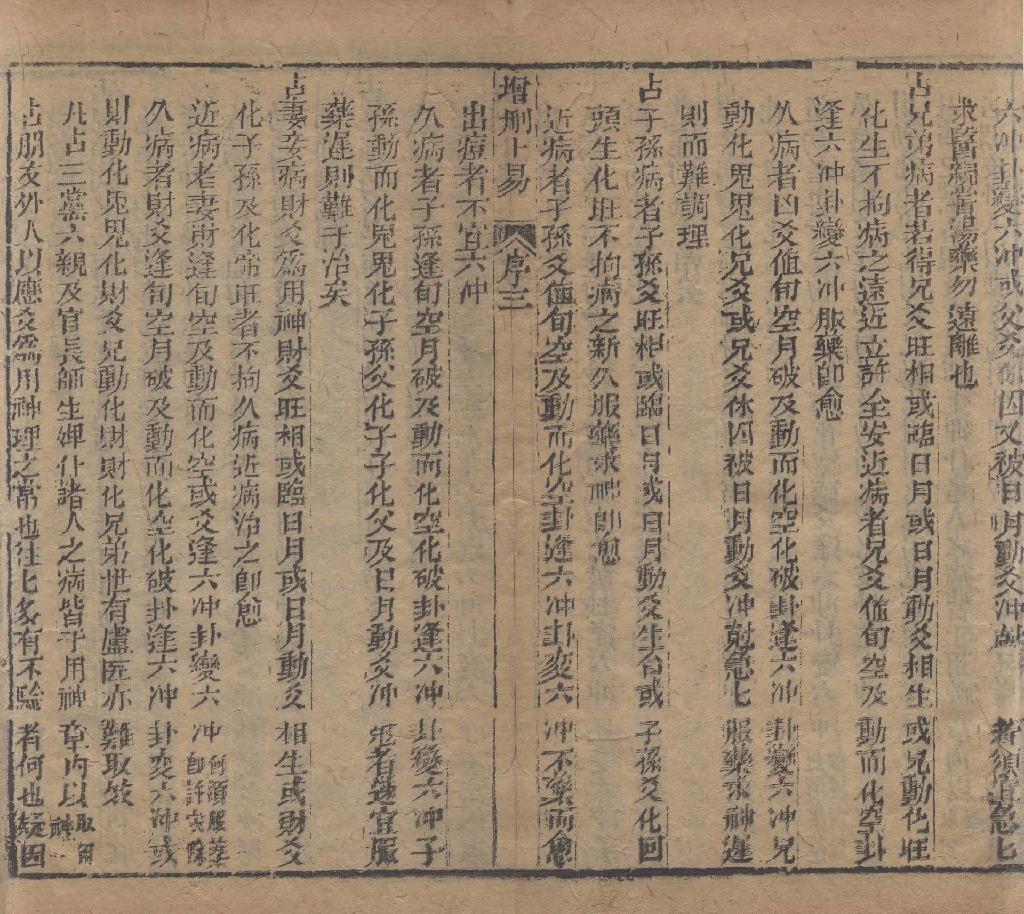 六冲卦變六冲或父爻休囚又被日月動爻冲尅者須宜急七
求醫親嘗湯藥勿遠離也
占兄弟病者若得兄爻旺相或臨日月或日月動爻相生或兄動化旺
化生不拘病之遠近立許全安近病者兄爻值旬空及動而化空卦
逢六冲卦變六冲服藥即愈
久病者凶爻值旬空月破及動而化空化破卦逢六冲卦變六冲兄
動化鬼鬼化兄爻或兄爻休囚被日月動爻冲尅急七服藥求神遲
則而難調理
占子孫病者子孫爻旺相或臨日月或日月動爻生合或子孫爻化回
頭生化旺不拘病之新久服藥求神即愈
近病者子孫爻值旬空及動而化空卦逢六冲卦变六冲不藥而愈
增刪卜易 序 三
出痘者不宜六冲
久病者子孫逢旬空月破及動而化空化破卦逢六冲卦變六冲子
孫動而化鬼鬼化子孫父化子子化父及日月動爻冲尅者速宜服
藥遲則難于治矣
占妻妾病財爻爲用神財爻旺相或臨日月或日月動爻相生或財爻
化子孫及化帝旺者不拘久病近病治之即愈
近病者妻財逢旬空及動而化空或爻逢六冲卦變六冲何須服藥即許安
久病者財爻逢旬空月破及動而化空化破卦逢六冲卦变六冲或
財動化鬼鬼化財爻兄動化財財化兄弟世有盧医亦難取效
凡占三黨六親及官長師生婢仆諸人之病皆于用神章内以取用神
占朋友外人以應爻爲用神理之常也往七多有不驗者何也疑因